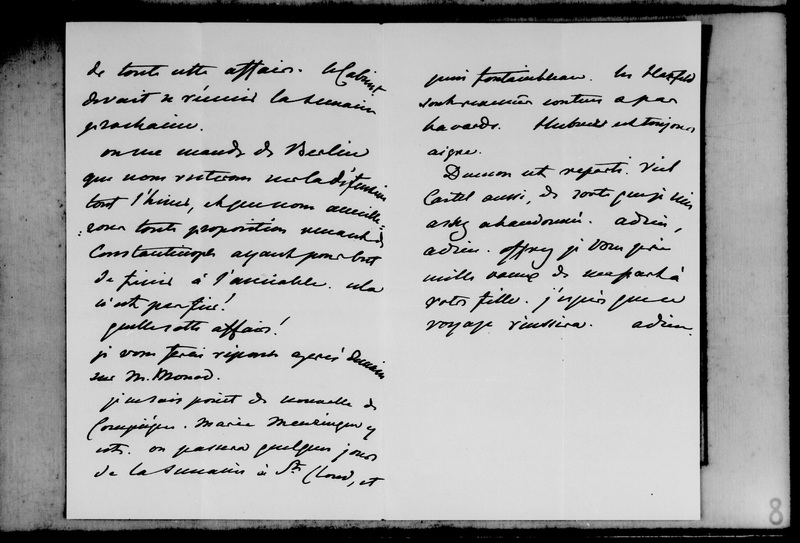 de toute cette affaire. le Cabinet
devait se réunir la semaine
prochaine.
on me mande de Berlin
que nous resterons sur la défensive
tout l'hiver, et que nous accueille-
:rons toute proposition venant de
Constantinople ayant pour but
de finir à l'amiable. cela
n'est pas fini!
quelle sotte affaire!
je vous ferai réponse après demain
sur M. Monod.
je ne sais point de nouvelle de
Compiègne. Marie Meneringen y
est. on passera quelques jours
de la semaine à St Cloud, et
puis Fontainebleau. les Hatzfeld
sont revenus contens a par
bavards. Hubner est toujours
aigre.
Dumon est reparti. Viel
Castel aussi, de sorte que je suis
assez abandonnée. adieu,
adieu. offrez je vous prie
mille vœux de ma part à
votre fille. j'espère que ce
voyage réussira. adieu.
8